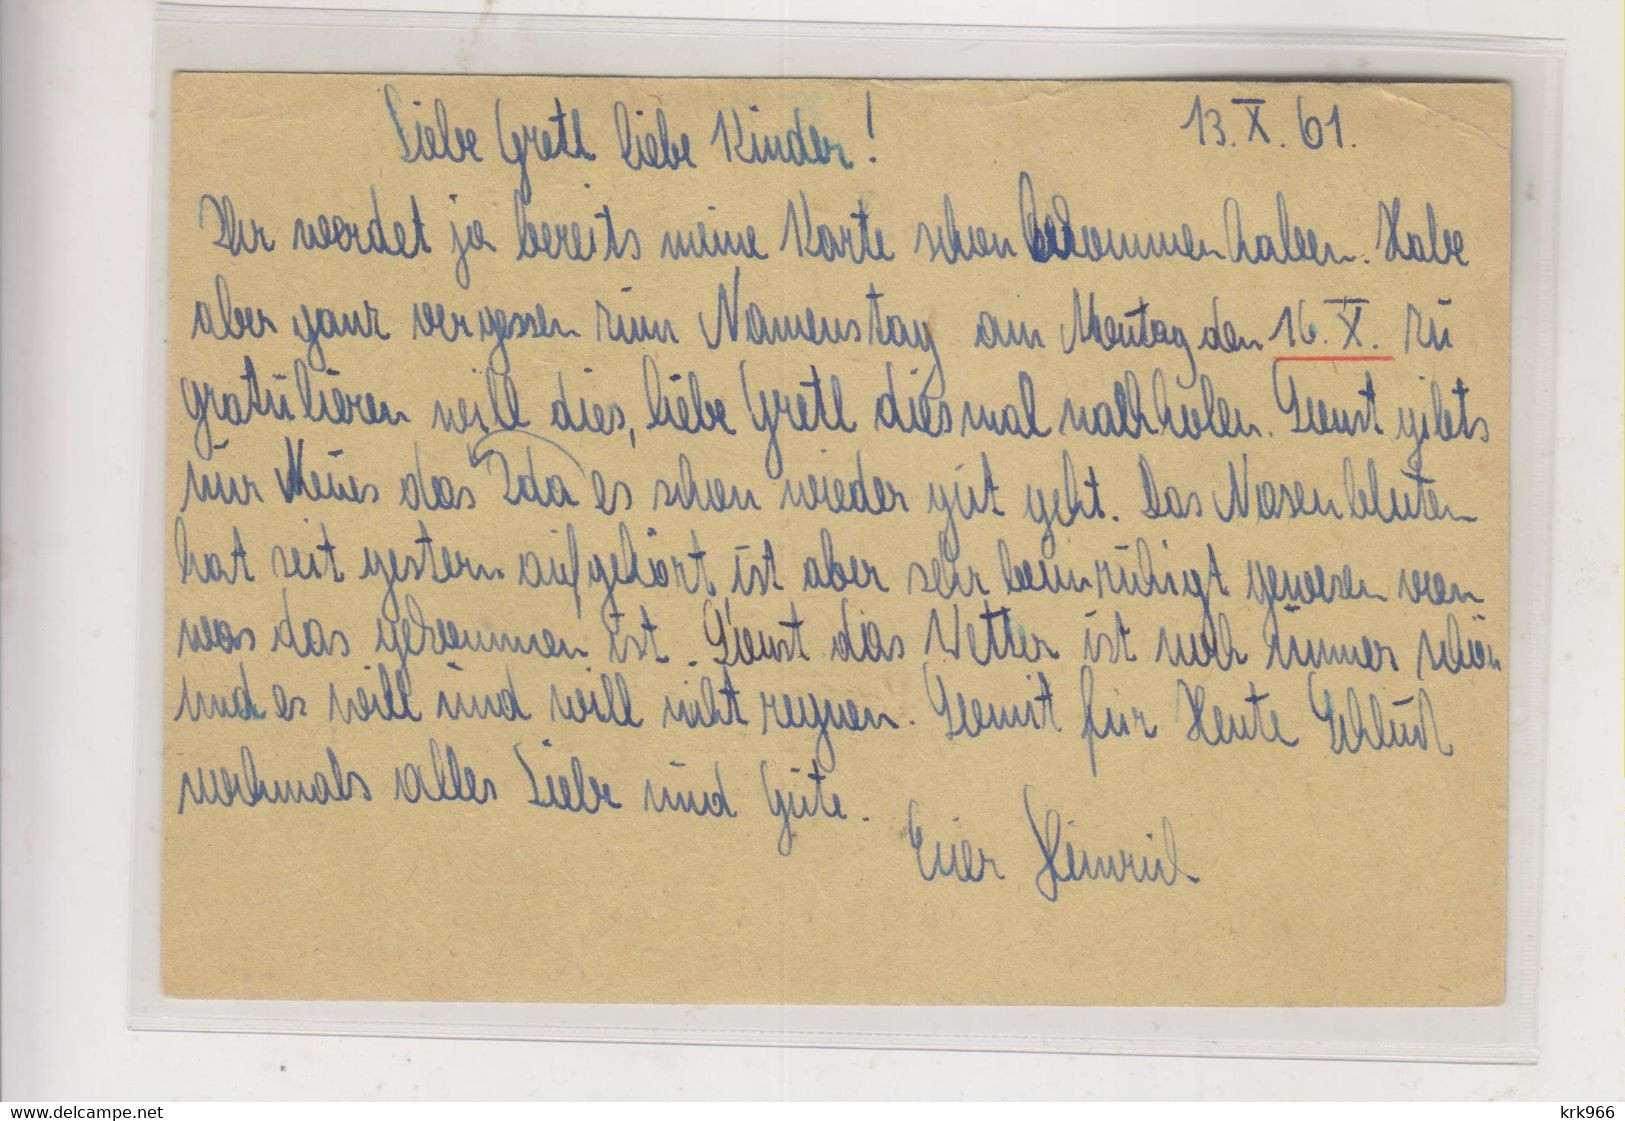 13.X.61.
Liebe Gretl liebe Kinder!
Ihr werdet ja bereits meine Karte schon bekommen haben. Habe
aber ganz vergessen zum Namenstag am Montag den 16.X. zu
gratulieren will dies, liebe Gretl diesmal nachholen. Sonst gibts
nur Neues das Ida es schon wieder gut geht. Das Nasenbluten
hat seit gestern aufgehört ist aber sehr beunruhigt gewesen von
was das gekommen ist. Sonst das Wetter ist noch immer schön
und es will und will nicht regnen. Somit für Heute Schluß
nochmals alles Liebe und Gute.
Euer Heinrich
www.delcampe.net
krk966